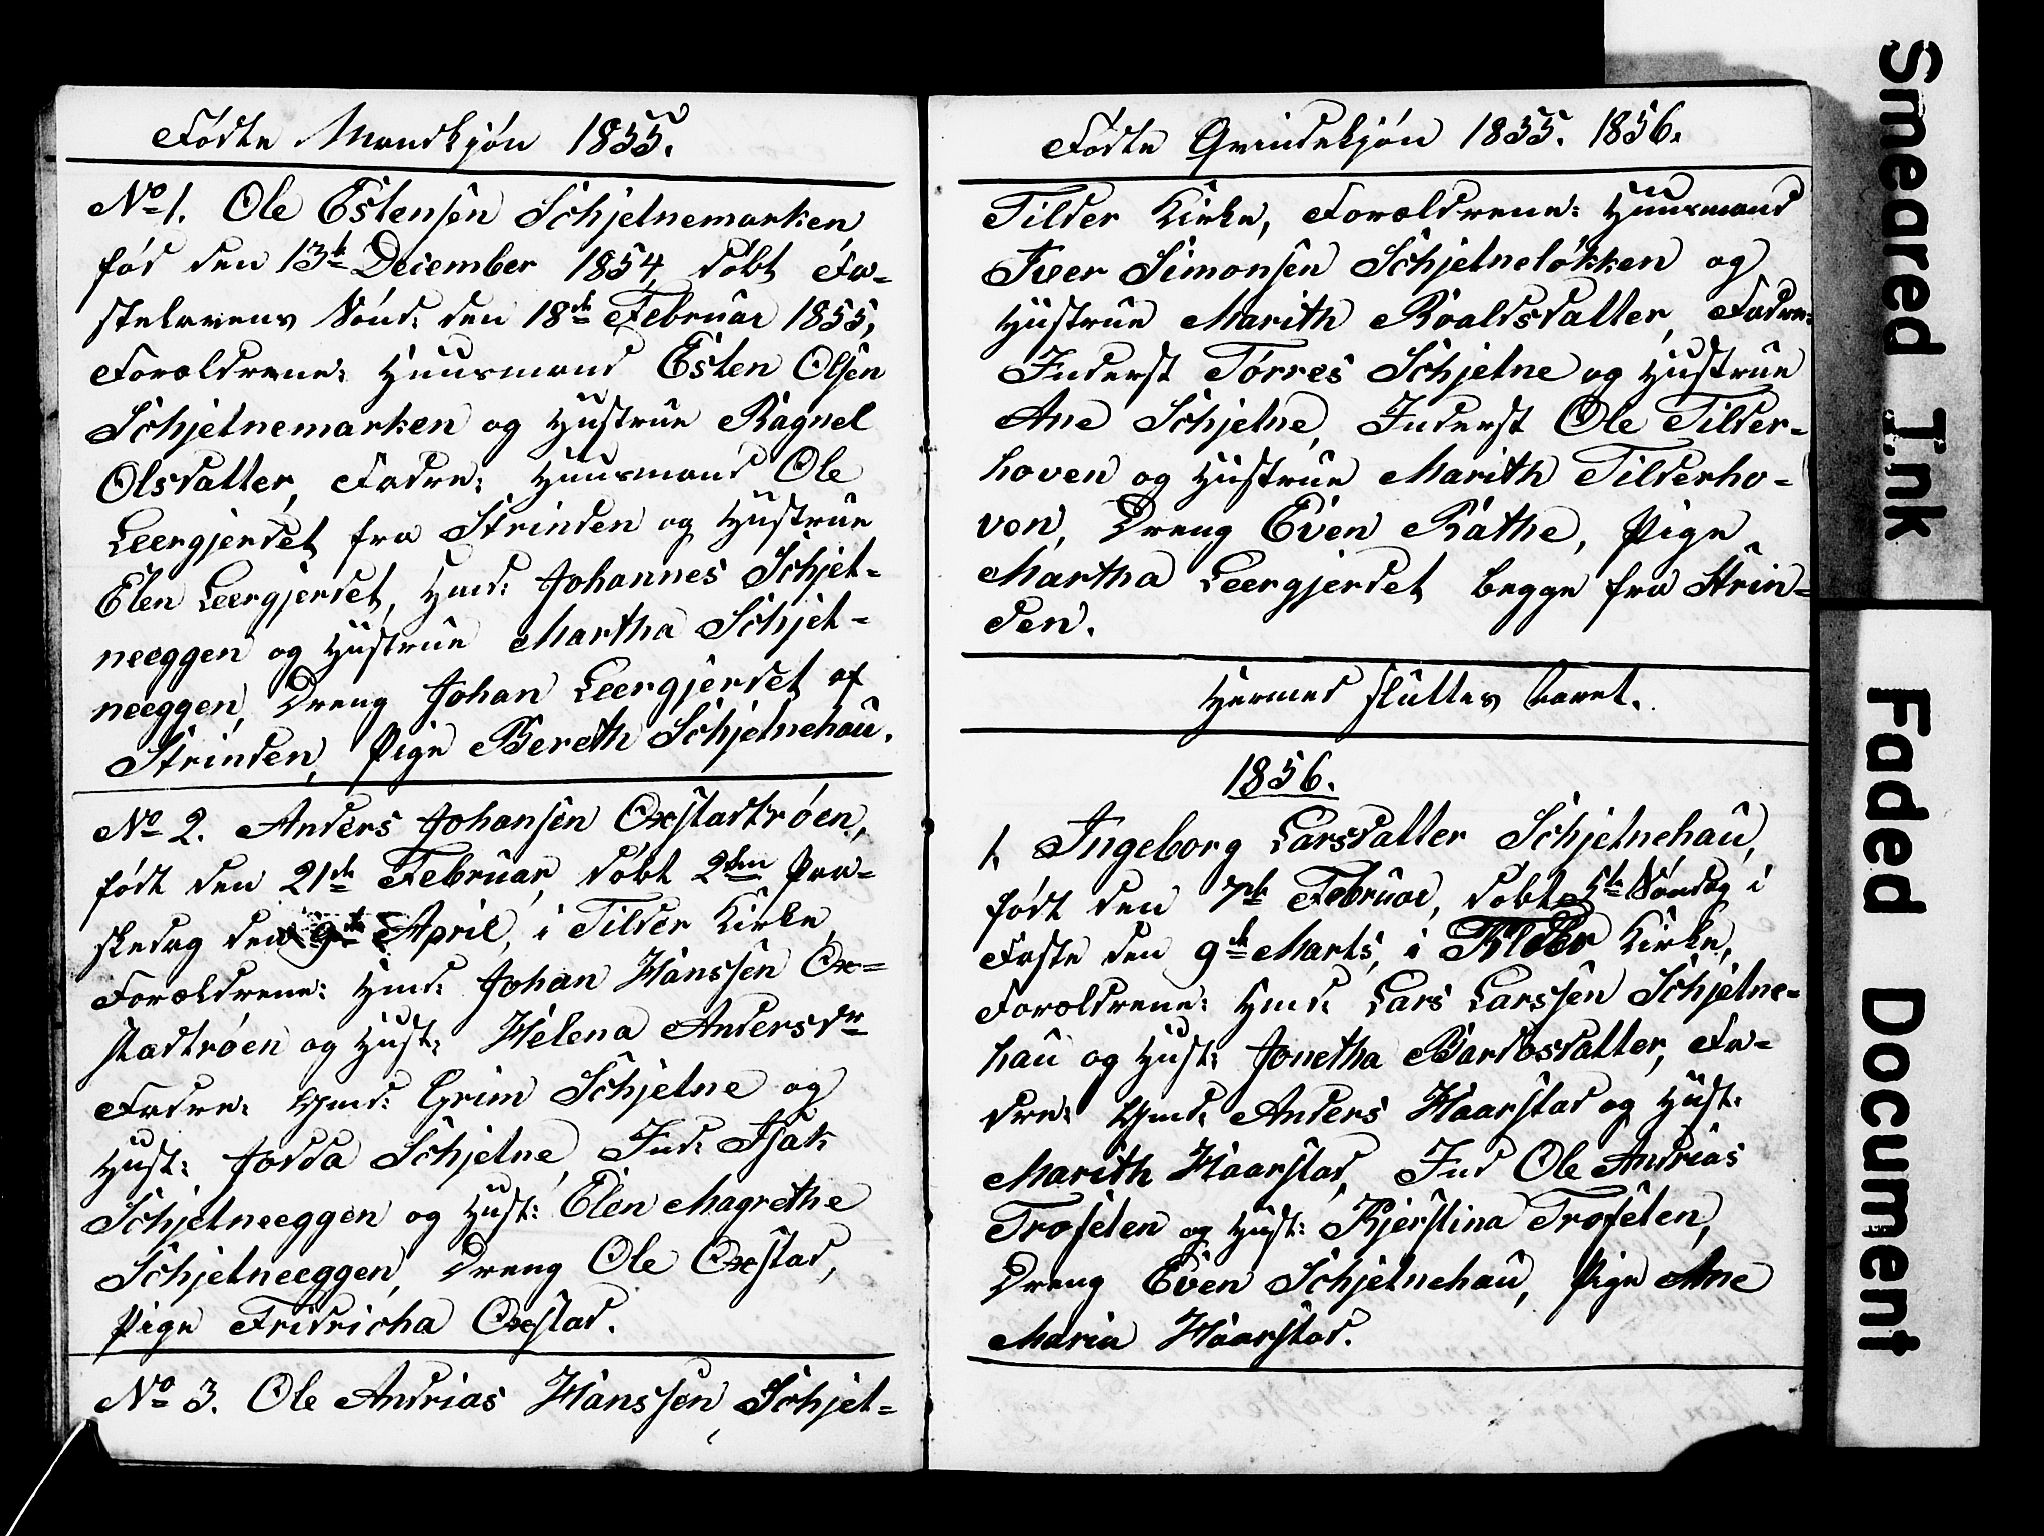 Fødte Mandkjøn 1855.
No 1. Ole Estensen Schjelnemarken
fød den 13de December 1854, døbt Fa-
stelavens Sønd: den 18de Februar 1855,
Foræeldrene: Huusmand Esten Olsen
Schjelnemarken og Hustrue Ragnel
Olsdatter, Fadre: Huusmand Ole
Leergjerdet fra Strinden og Hustrue
Elen Leergjerdet, Hmd: Johannes Schjel-
neeggen og Hustrue Martha Schjel-
neeggen, Dreng Johan Leergjerdet af
Strinden, Pige Bereth Schjelnehau.
No 2. Anders Johansen Oxstadtrøen,
født den 21de Februar, døbt 2den Paa-
skedag den 9de April, i Tilder Kirke,
Forældrene: Hmd: Johan Hanssen Ox-
stadtrøen og Hust: Helena Andersdr
Fadre: Gmd: Grim Schjelne og
Hust: Jodda Schjelne, Ind: Isak
Schjelneeggen og Hust: Elen Magrethe
Schjelneeggen, Dreng Ole Oxstad,
Pige Fridricha Oxstad.
No 3. Ole Andrias Hanssen, Schjel-
Fødte Qvindekjøn 1855. 1856.
Tilder Kirke, Forældrene: Huusmand
Iver Simonsen Schjelneløkken og
Hustrue Marith Roaldsdatter, Fadre:
Inderst Tørres Schjelne og Hustrue
Ane Schjelne, Inderst Ole Tilder-
hoven og Hustrue Marith Tilderho-
ven, Dreng Even Rathe, Pige
Martha Leergjerdet begge fra Strin-
den.
Hermed sluttes Aaret.
1856.
1. Ingeborg Larsdatter Schjelnehau,
født den 7de Februar, døbt 5te Søndag i
Faste den 9de Marts, i Tilder Kirke,
Forældrene: Hmd: Lars Larssen Schjelne-
hau og Hust: Jonetha Bardosdatter, Fa-
dre: Gmd: Anders Haarstad og Hust:
Marith Haarstad, Ind Ole Andrias
Troselen og Hust: Kjerstina Troselen,
Dreng Even Schjelnehau, Pige Ane
Maria Haarstad.
Smeared Ink
Faded Document